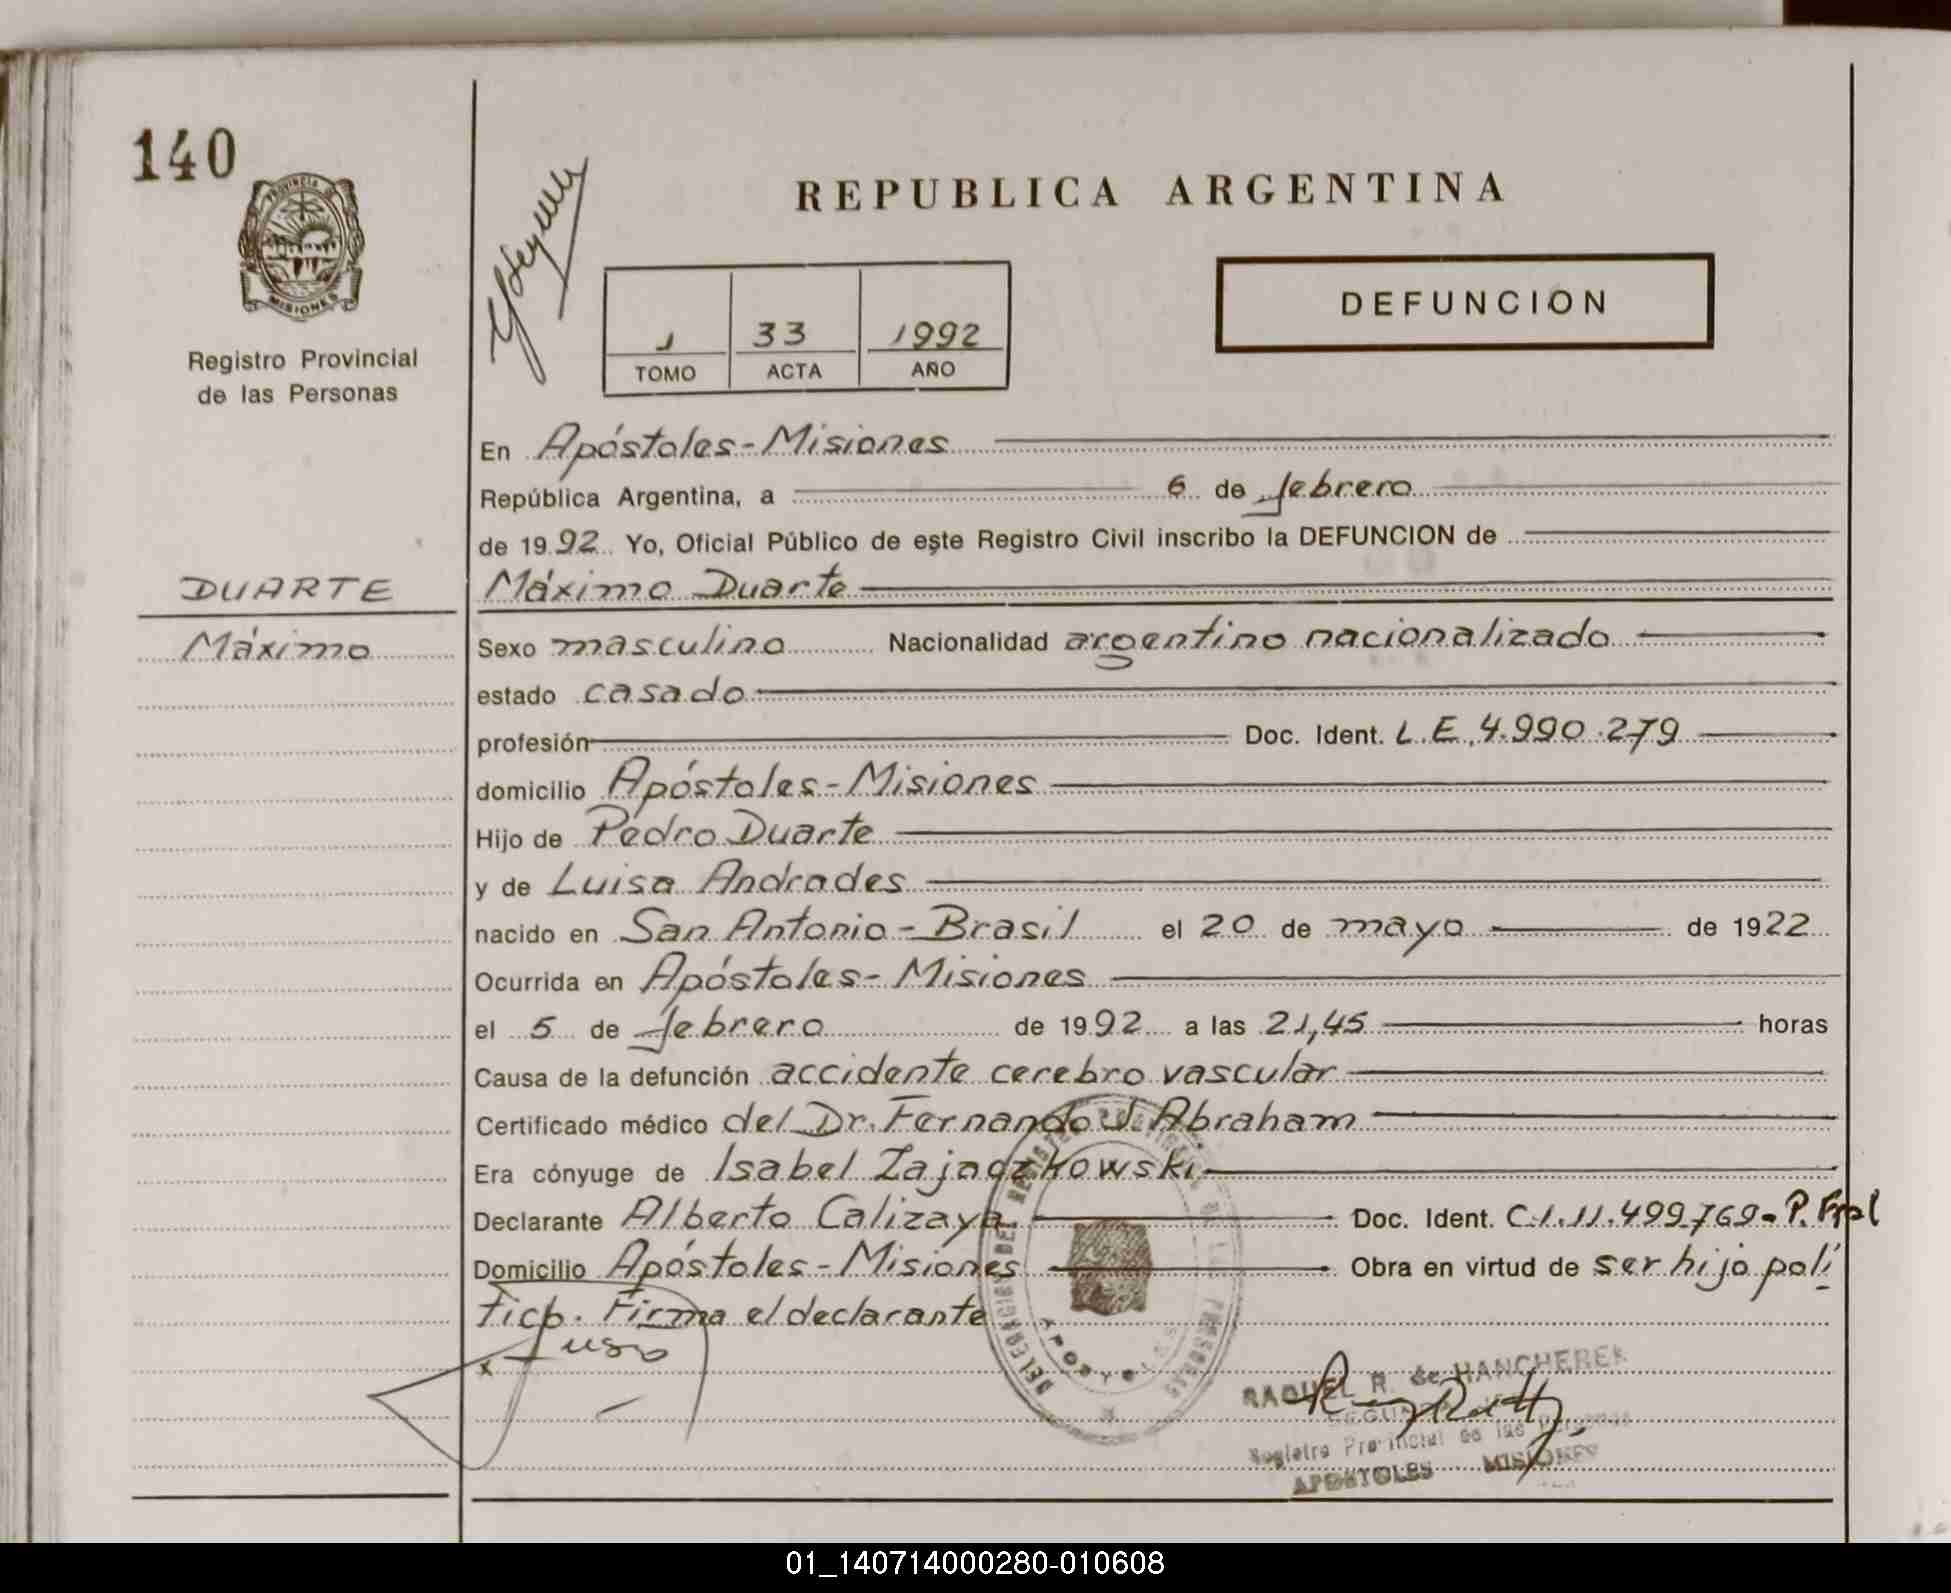 140
PROVINCIA DE
MISIONES
Registro Provincial
de las Personas
REPUBLICA ARGENTINA
DEFUNCION
1 33 1992
TOMO ACTA AÑO
En Apóstoles-Misiones
República Argentina, a 6 de febrero
de 1992 Yo, Oficial Público de este Registro Civil inscribo la DEFUNCION de
DUARTE
Máximo Duarte
Máximo
Sexo masculino Nacionalidad argentino nacionalizado
estado casado
profesión Doc. Ident. L.E. 4.990.279
domicilio Apóstoles-Misiones
Hijo de Pedro Duarte
y de Luisa Andrades
nacido en San Antonio-Brasil el 20 de mayo de 1922
Ocurrida en Apóstoles-Misiones
el 5 de febrero de 1992 a las 21,45 horas
Causa de la defunción accidente cerebro vascular
Certificado médico del Dr. Fernando J. Abraham
Era cónyuge de Isabel Zajaczkowski
Declarante Alberto Calizaya Doc. Ident. C.I. 11.499.769- P.Fral
Domicilio Apóstoles-Misiones Obra en virtud de ser hijo polí
tico. Firma el declarante
DELEGACION DEL REGISTRO PROVINCIAL DE LAS PERSONAS
APOSTOLES
RAQUEL R. de HANCHEREK
Registro Provincial de las Personas
APOSTOLES MISIONES
01_140714000280-010608